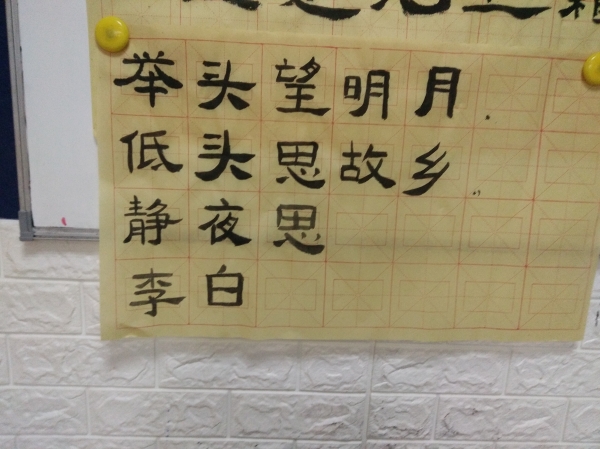 举头望明月.
低头思故乡.
静夜思
李白